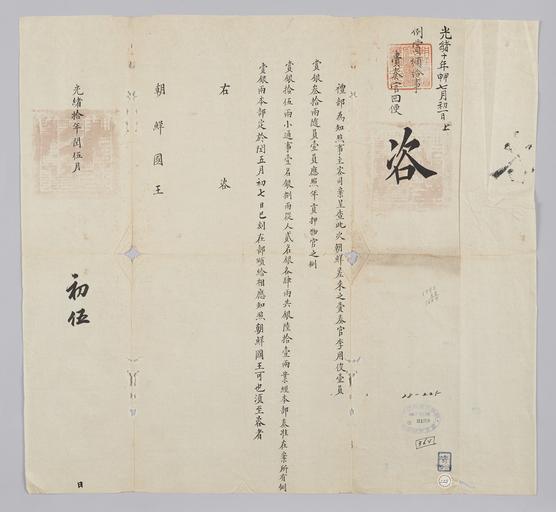 光緒十年甲申七月初一日上
賫奏官回便
咨
禮部為知照事主客司案呈查此次朝鮮差來之賫奏官李用俊壹員
賞銀叁拾兩隨員壹員應照年貢押物官之例
賞銀拾伍兩小通事壹名銀捌兩從人貳名銀各肆兩共銀陸拾壹兩業經本部奏准在案所有例
賞銀兩本部定於閏五月初七日巳刻在部頒給相應知照朝鮮國王可也須至咨者
右咨
朝鮮國王
光緒拾年閏伍月
初伍
日